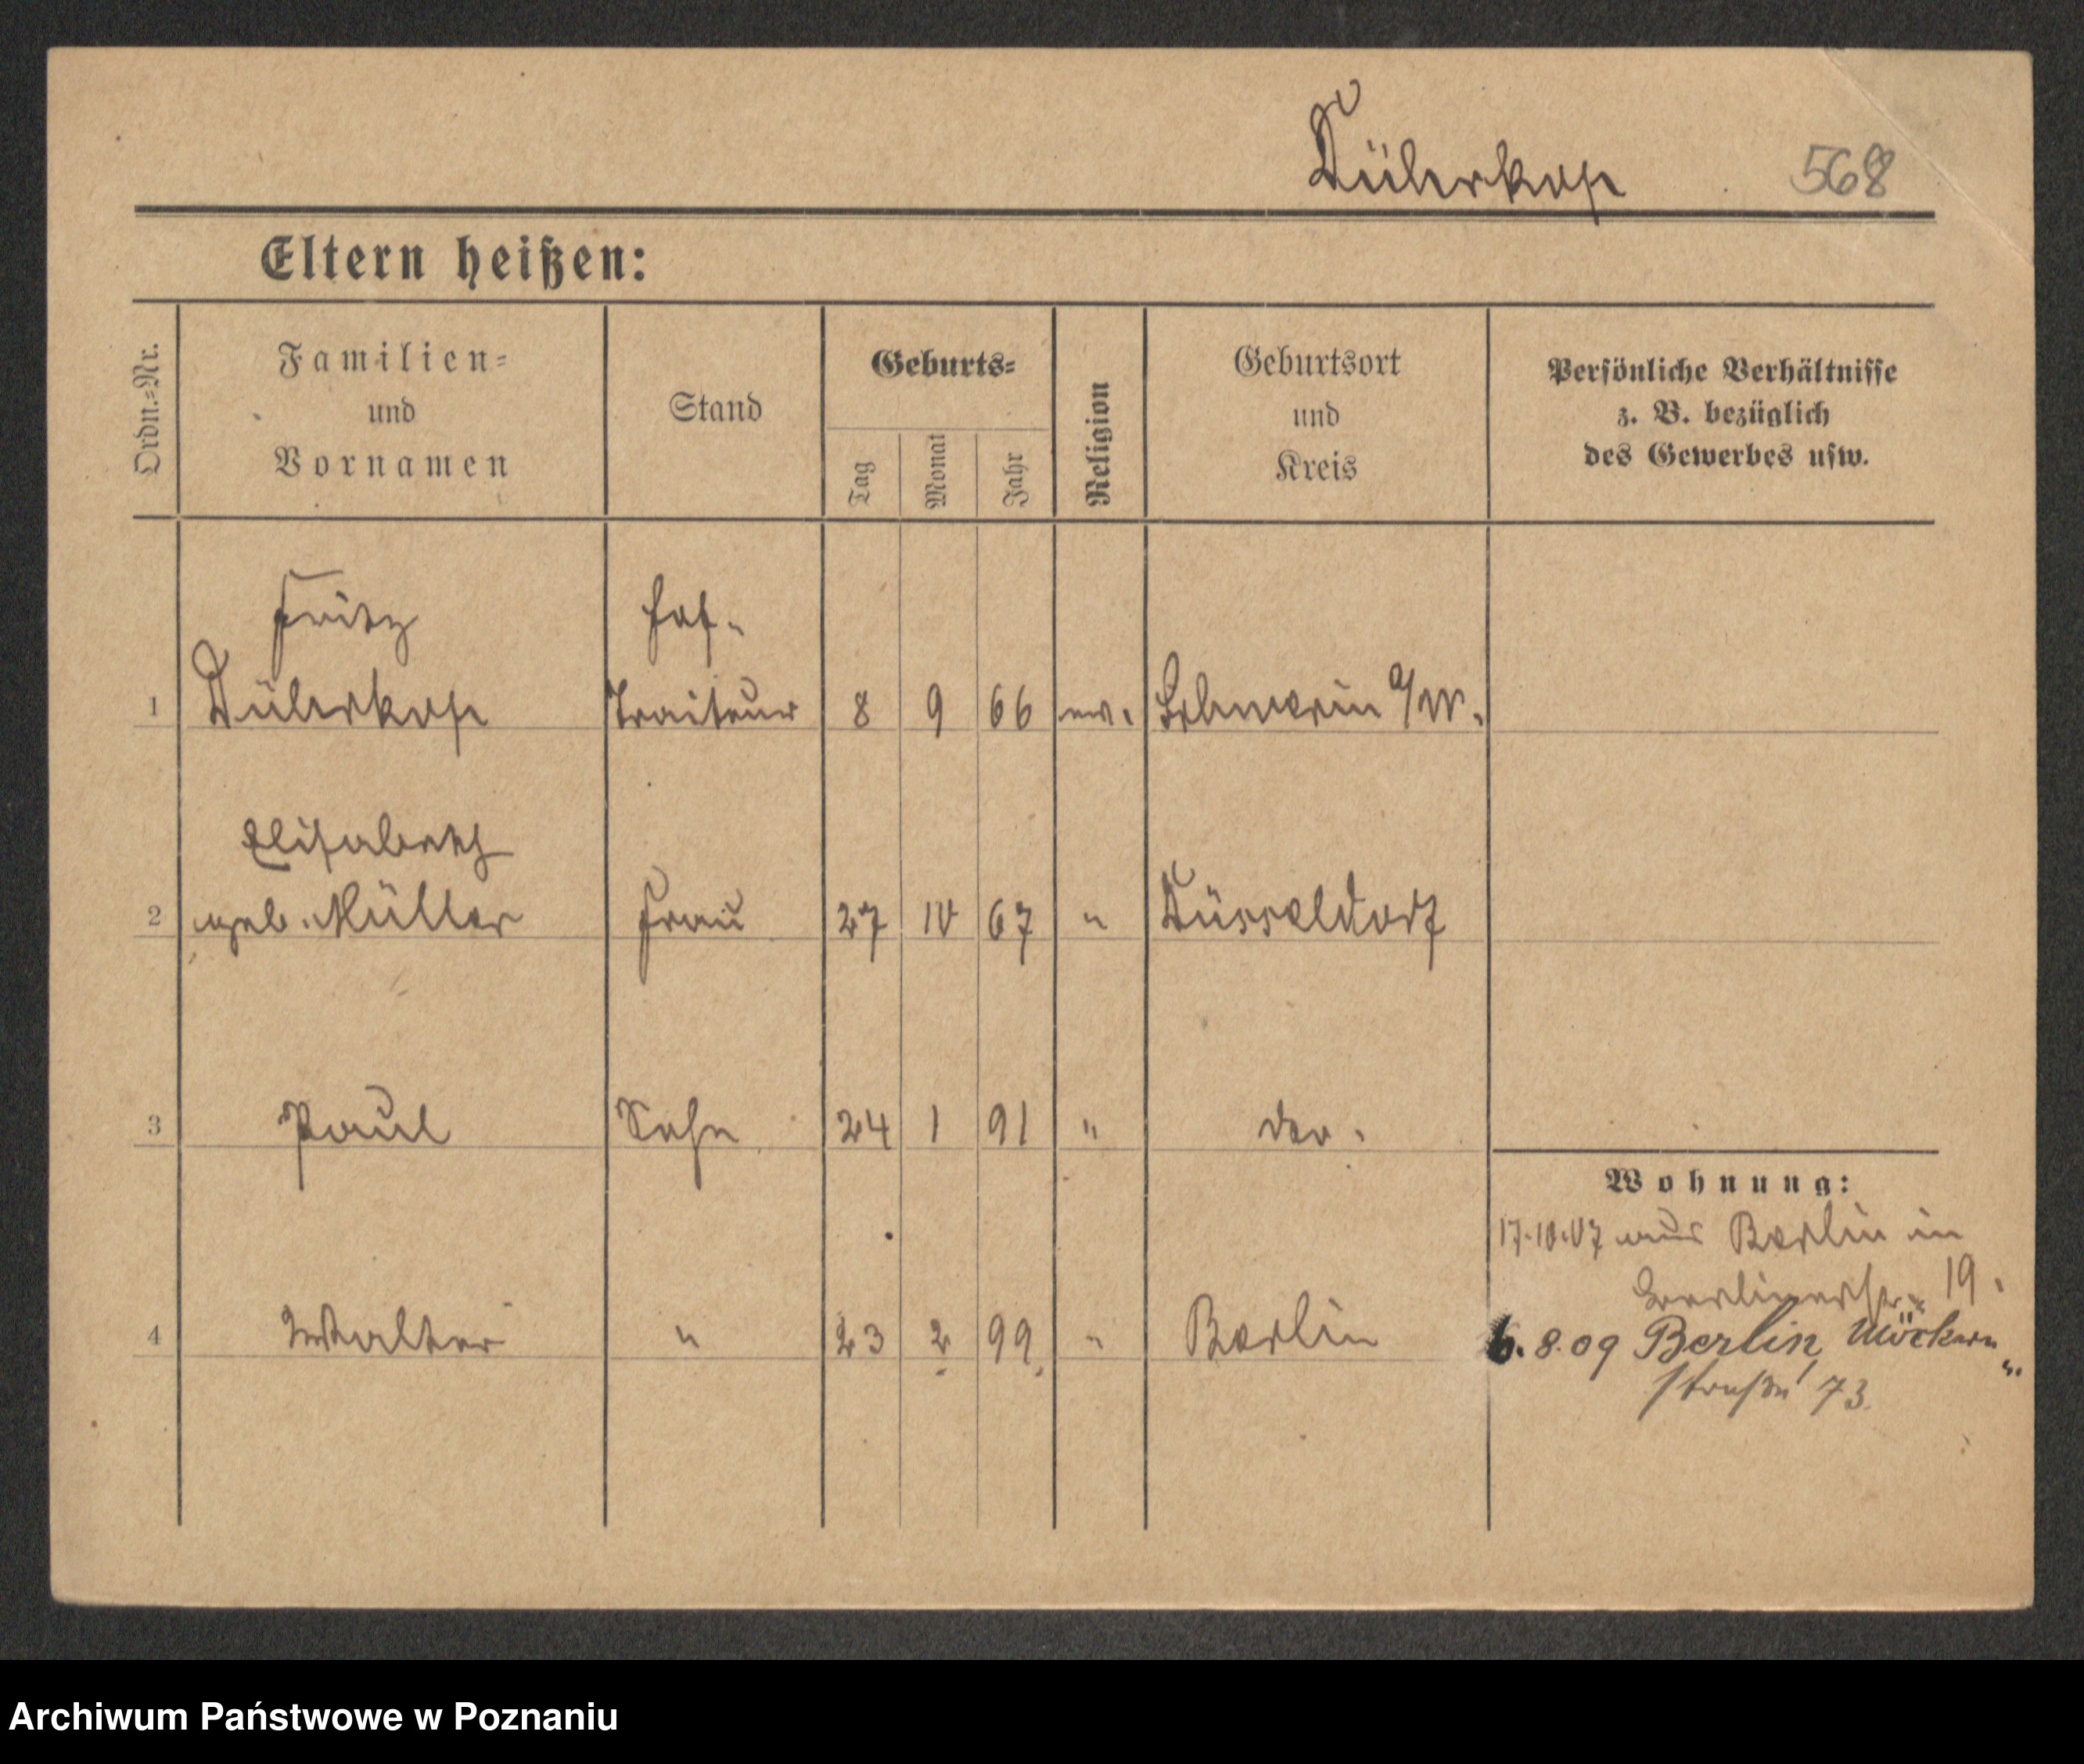 Dührkop 568
Eltern heißen:
Ordn.-Nr.
Familien-
und
Vornamen
Stand
Geburts-
Tag
Monat
Jahr
Religion
Geburtsort
und
Kreis
Persönliche Verhältnisse
z. B. bezüglich
des Gewerbes usw.
Fritz Hof-
1 Dührkop Traiteur 8 9 66 ev. Schwerin a/W.
Elisabeth
2 geb. Müller Frau 27 10 67 " Düsseldorf
3 Paul Sohn 24 1 91 " do.
Wohnung:
17.10.07 aus Berlin in
Berlinerstr. 19.
4 Walter " 23 2 99 " Berlin
6.8.09 Berlin, Möckern-
straße 73.
Archiwum Państwowe w Poznaniu